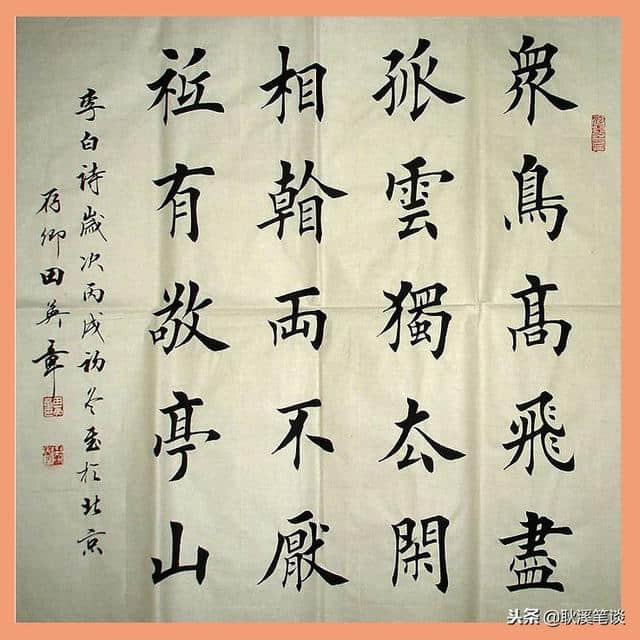 衆鳥髙飛盡
孤雲獨厺閑
相看両不厭
祗有敬亭山
李白詩歲次丙戌初冬書於北京
存卿田英章
头条@耿溪笔谈